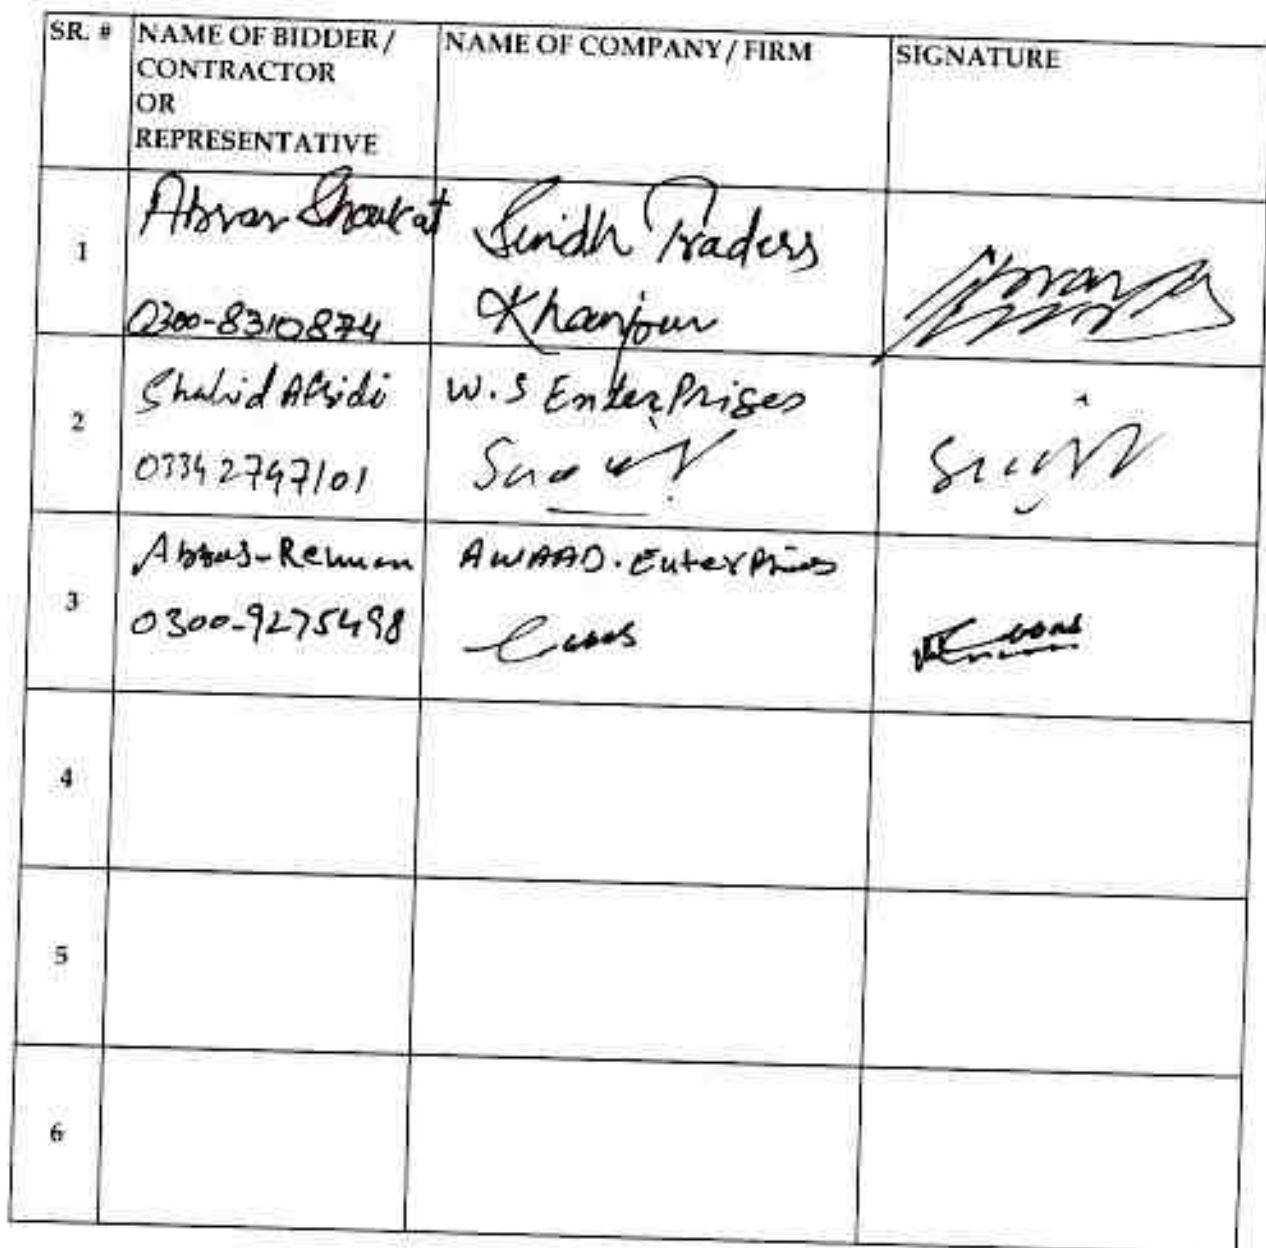 SR. # NAME OF BIDDER / CONTRACTOR OR REPRESENTATIVE NAME OF COMPANY / FIRM SIGNATURE
1
Abrar Shoukat
0300-8310874
Sindh Traders
Khanpur
2
Shahid Afridi
03342747101
W.S EnterPrises
3
Abbas-Rehman
0300-9275498
AWAAD.EnterPrises
4
5
6